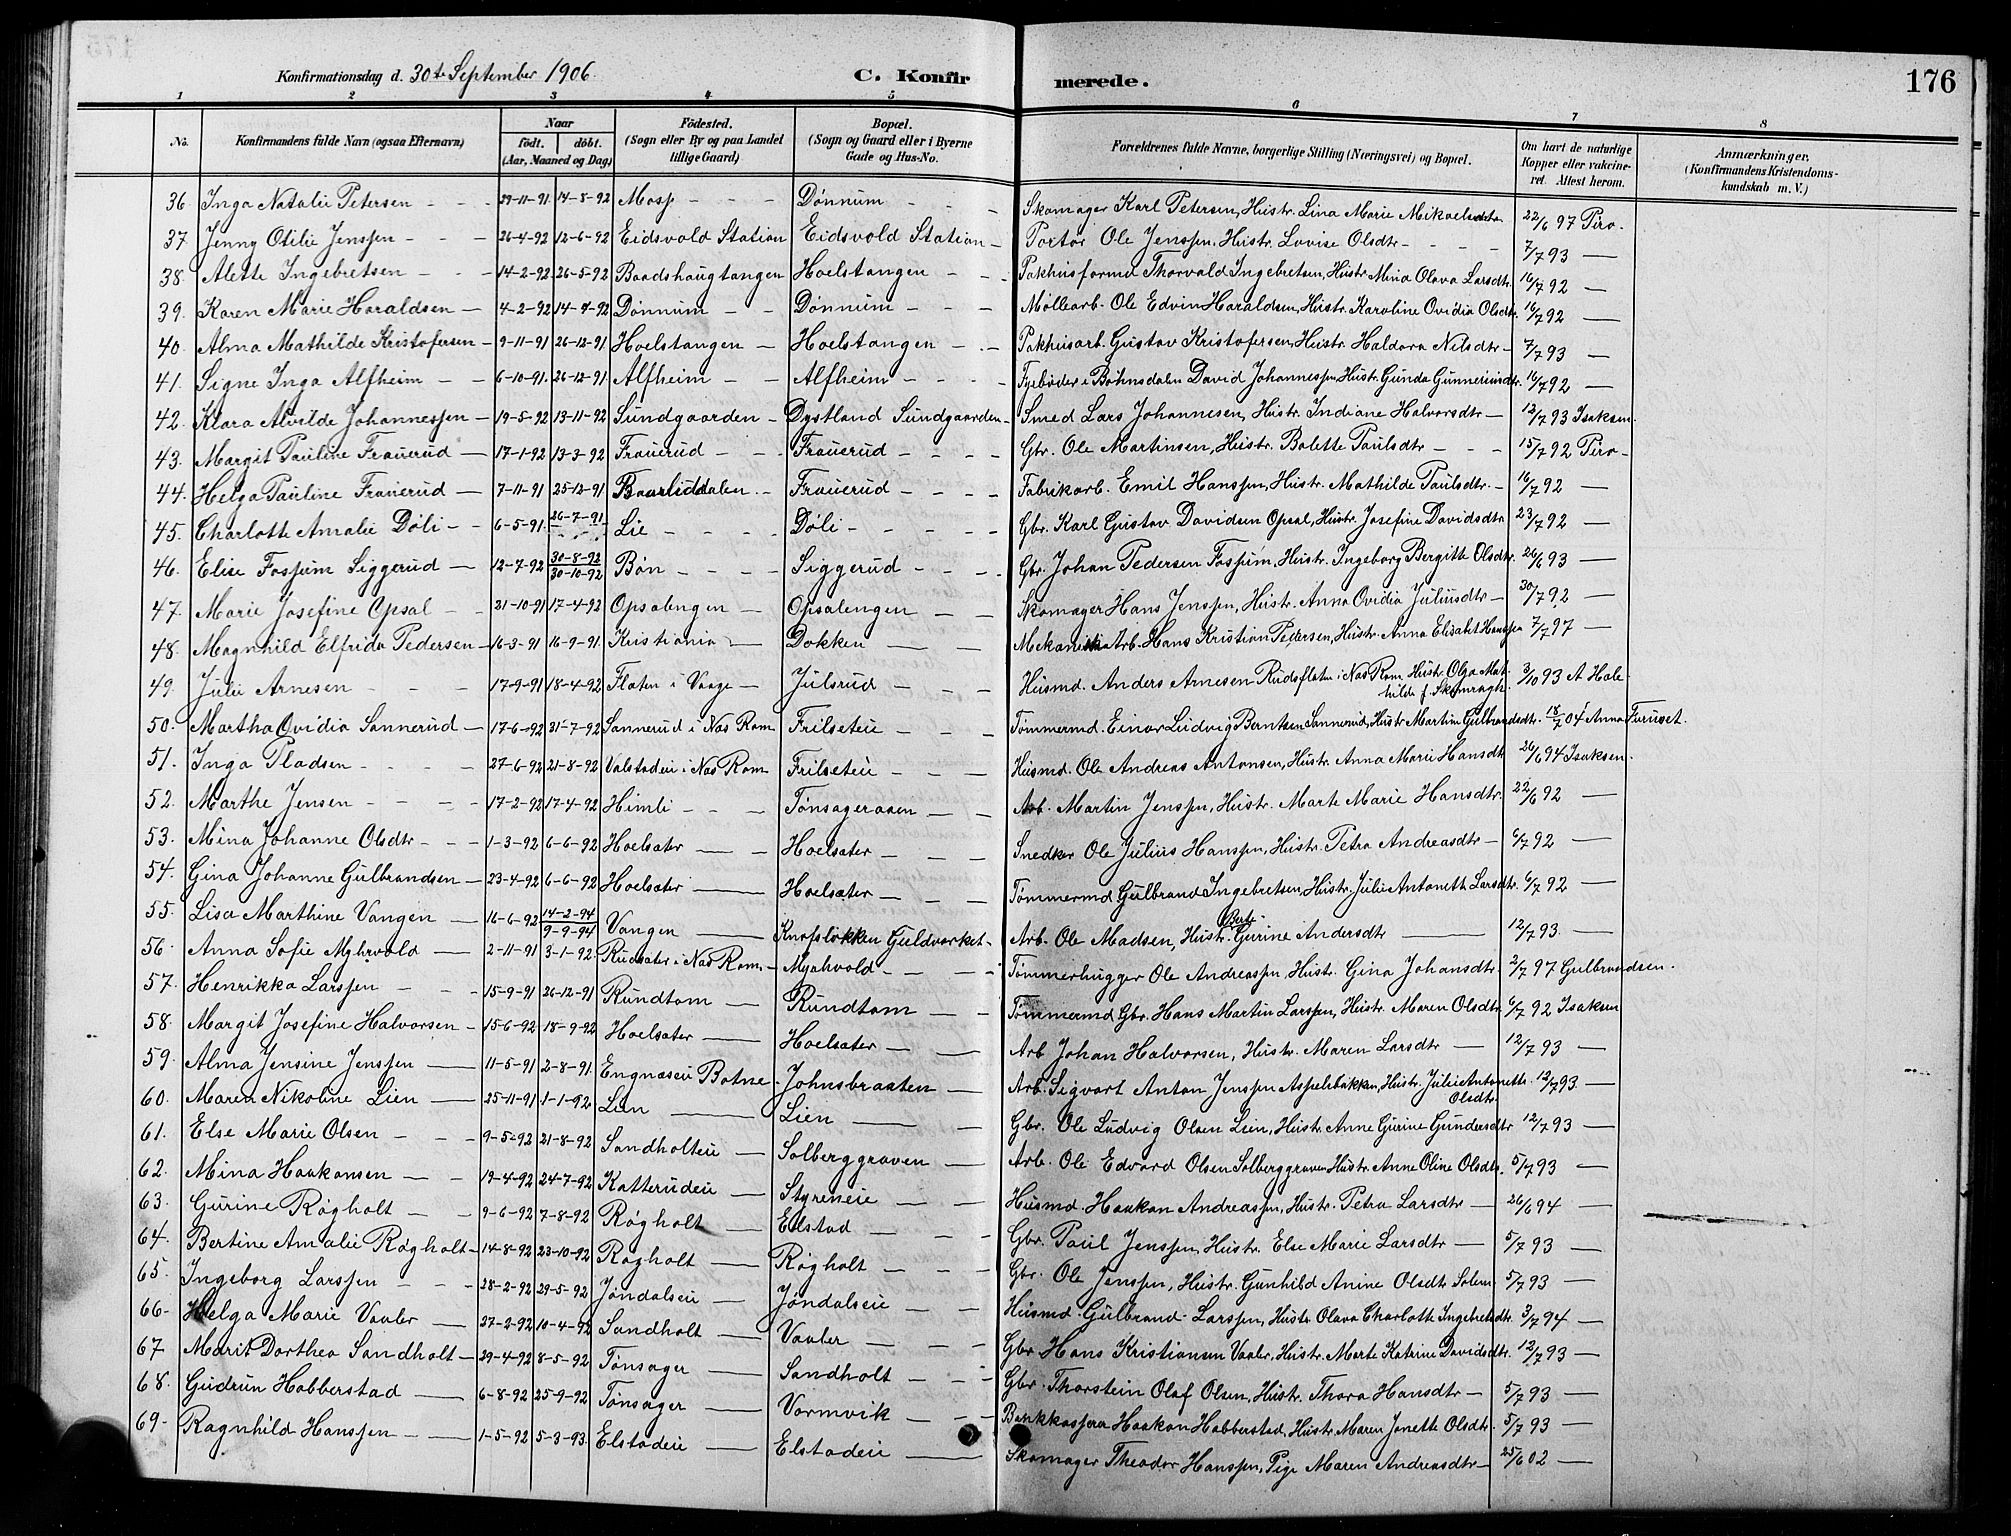 Konfirmationsdag d. 30te September 1906.
C. Konfirmerede.
176
1 2 3 4 5 6 7 8
No. Konfirmandens fulde Navn (ogsaa Efternavn) Naar født. døbt. (Aar, Maaned og Dag) Fødested. (Sogn eller By og paa Landet tillige Gaard) Bopæl. (Sogn og Gaard eller i Byerne Gade og Hus-No. Forældrenes fulde Navne, borgerlige Stilling (Næringsvei) og Bopæl. Om havt de naturlige Kopper eller vakcineret. Attest herom. Anmærkninger. (Konfirmandens Kristendomskundskab m. V.)
36 Inga Natalie Petersen 29-11-91 14-8-92 Mosp Dønnum Skomager Karl Petersen, Hustr. Lina Marie Mikaelsdtr 22/6 97 Piro
37 Jenny Otilie Jenssen 26-4-92 12-6-92 Eidsvold Station Eidsvold Station Portør Ole Jenssen, Hustr. Lovise Olsdtr 7/7 93 —
38. Alette Ingebretsen 14-2-92 26-5-92 Baadshaugtangen Hoelstangen Pakhusformd Thorvald Ingebretsen, Hustr Mina Olava Larsdtr. 16/7 92 —
39. Karen Marie Haraldsen 4-2-92 14-4-92 Dønnum Dønnum Møllearb. Ole Edvin Haraldsen, Hustr. Karoline Ovidia Olsdtr 16/7 92 —
40. Alma Mathilde Kristofersen 9-11-91 26-12-91 Hoelstangen Hoelstangen Pakhusarb. Gustav Kristofersen, Hustr. Haldora Nilsdtr 7/7 93 —
41. Signe Inga Alfheim 6-10-91. 26-12-91 Alfheim Alfheim Fyrbøder i Bøhnsdalen David Johannessen Hustr. Gunda Gunneriusdtr. 16/7 92 —
42. Klara Alvilde Johannessen 19-5-92 13-11-92 Sundgaarden Dystland Sundgaarden Smed Lars Johannesen, Hustr. Indiane Halvorsdtr 12/7 93 Isaksen
43. Margit Pauline Frauerud 17-1-92 13-3-92 Frauerud Frauerud Gbr. Ole Martinsen, Hustr. Bolette Paulsdtr 15/7 92 Piro
44. Helga Pauline Frauerud 7-11-91 25-12-91 Baarliddalen Frauerud Fabrikarb. Emil Hanssen, Hustr. Mathilde Paulsdtr. 16/7 92 —
45. Charlotte Amalie Døli 6-5-91. 26-7-91 Lie Døli Gbr. Karl Gustav Davidsen Opsal, Hustr. Josefine Davidsdtr 23/7 92 —
46. Elise Fossum Siggerud 12-7-92 30-8-92 30-10-92 Bøn Siggerud Gbr. Johan Pedersen Fossum, Hustr. Ingeborg Bergitte Olsdtr. 26/6 93 —
47. Marie Josefine Opsal 21-10-91 17-4-92 Opsalengen Opsalengen Skomager Hans Jenssen, Hustr. Anna Ovidia Juliusdtr 30/7 92 —
48. Magnhild Elfrida Pedersen 16-3-91 16-9-91. Kristiania Dokken Mekanisk Arb. Hans Kristian Pedersen, Hustr. Anna Elisabet Hanssen 7/7 97 —
49. Julie Arnesen 17-9-91 18-4-92 Flaten i Vaage Julsrud Husmd. Anders Arnesen Rudsflaten i Nas Rom. Hustr. Olga Mathilde f. 3/10 93 A Hole
50. Martha Ovidia Sannerud 17-6-92 31-7-92 Sannerud i Nas Rom Frilseteie Tømmermd. Einar Ludvig Berntsen Sannerud, Hustr Martine Gulbrandsdtr. 18/7 04 Anna Furuset.
51. Inga Pladsen 27-6-92 21-8-92 Valstadeie i Nas Rom Frilseteie Husmd. Ole Andreas Antonsen, Hustr. Anna Marie Hansdtr 26/6 94 Isaksen.
52. Marthe Jensen 17-2-92 17-4-92 Himli Tønsageraasen Arb. Martin Jenssen, Hustr. Marte Marie Hansdtr. 22/6 92 —
53. Mina Johanne Olsdtr 1-3-92 6-6-92 Hoelsæter Hoelsæter Snedker Ole Julius Hanssen, Hustr. Petra Andreasdtr 6/7 92 —
54. Gina Johanne Gulbrandsen 23-4-92 6-6-92 Hoelsæter Hoelsæter Tømmermd Gulbrand Ingebretsen, Hustr. Julie Antonette Larsdtr. 6/7 92 —
55. Lisa Marthine Vangen 16-6-92 14-2-94 9-9-94 Vangen Knapsløkken Guldværket Arb. Ole Madsen, Hustr. Berte Gurine Andersdtr 12/7 93. —
56. Anna Sofie Myhrvold 2-11-91 3-1-92 Rudsæter i Nas Rom. Myhrvold Tømmerhugger Ole Andreassen, Hustr. Gina Johansdtr. 2/7 97 Gulbrandsen.
57. Henrikka Larssen 15-9-91 26-12-91 Rundtom Rundtom Tømmermd Gbr. Hans Martin Larssen, Hustr. Maren Olsdtr. 6/7 92 Isaksen
58. Margit Josefine Halvorsen 15-6-92 18-9-92 Hoelsæter Hoelsæter Arb Johan Halvorsen, Hustr. Maren Larsdtr 12/7 93 —
59. Alma Jensine Jenssen 11-5-91 2-8-91. Engnæseie Botne Johnsbraaten Arb. Sigvart Anton Jenssen Aspelebakken, Hustr. Julie Antonette Olsdtr 12/7 93. —
60. Maren Nikoline Lien 25-11-91 1-1-92 Lien Lien Gbr. Ole Ludvig Olsen Lien, Hustr. Anne Gurine Gundersdtr 12/7 93 —
61. Else Marie Olsen 9-5-92 21-8-92 Sandholteie Solberggraven Arb. Ole Edvard Olsen Solberggraven Hustr. Anne Oline Olsdtr. 5/7 93 —
62. Mina Haakonsen 19-4-92 24-7-92 Katterudeie Styreneie Husmd. Haakon Andreassen, Hustr. Petra Larsdtr 26/6 94 —
63. Gurine Røgholt 9-6-92 7-8-92 Røgholt Elstad Gbr. Paul Jenssen, Hustr. Else Marie Larsdtr 5/7 93 —
64. Bertine Amalie Røgholt 14-8-92 23-10-92 Røgholt Røgholt Gbr. Ole Jenssen, Hustr. Gunhild Anine Olsdtr Solem 5/7 93 —
65. Ingeborg Larssen 28-2-92 29-5-92 Jøndalseie Jøndalseie Husmd. Gulbrand Larssen, Hustr. Olava Charlotte Ingebretsdtr. 3/7 94 —
66. Helga Marie Vaaler 27-2-92 10-4-92 Sandholt Vaaler Gbr Hans Kristiansen Vaaler, Hustr. Marte Katrine Davidsdtr. 12/7 93 —
67 Marit Dorthea Sandholt 29-4-92 8-5-92 Tønsager Sandholt Gbr. Thorstein Olaf Olsen, Hustr. Thora Hansdtr 5/7 93 —
68. Gudrun Habberstad 6-8-92 25-9-92 Tønsager Vormvik Bankkasserer Haakon Habberstad, Hustr. Maren Jonette Olsdtr. 5/7 93 —
69. Ragnhild Hanssen 1-5-92 5-3-93 Elstadeie Elstadeie Skomager Theodor Hanssen, Pige Maren Andreasdtr 25/6 02 —